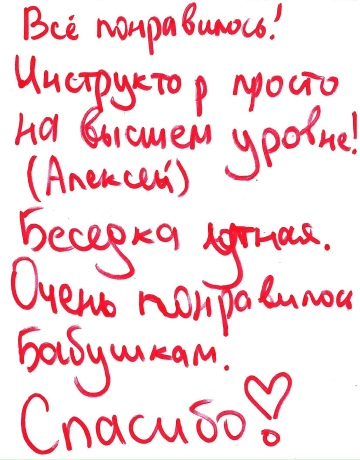 Всё понравилось!
Инструктор просто
на высшем уровне!
(Алексей)
Беседка уютная.
Очень понравилось
Бабушкам.
Спасибо!